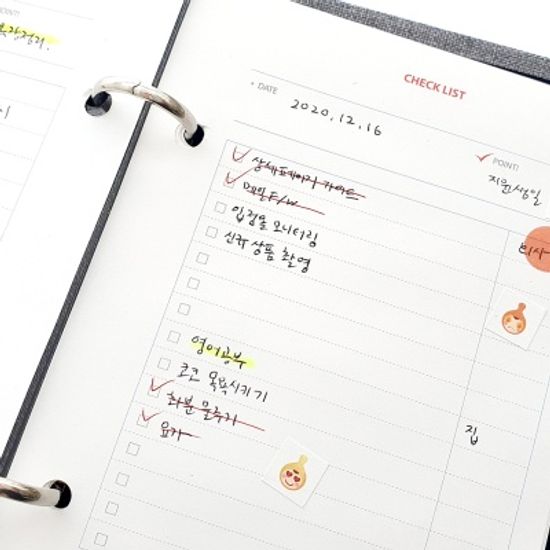 POINT!
CHECK LIST
DATE
2020.12.16
POINT!
지원생일
상세페이지 가이드
메일 F/W
입점몰 모니터링
신규 상품 촬영
회사
영어공부
코코 목욕시키기
화분 물주기
요가
집